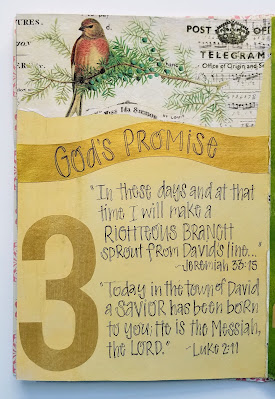 TURES.
POST OFFICE
TELEGRAM
Office of Origin and Se
Miss Ida Simmons
God's PROMISE
"In those days and at that
time I will make a
RIGHTEOUS BRANCH
sprout from David's line..."
~Jeremiah 33:15
3
"Today in the town of David
a SAVIOR has been born
to you; He is the Messiah,
the LORD." ~Luke 2:11